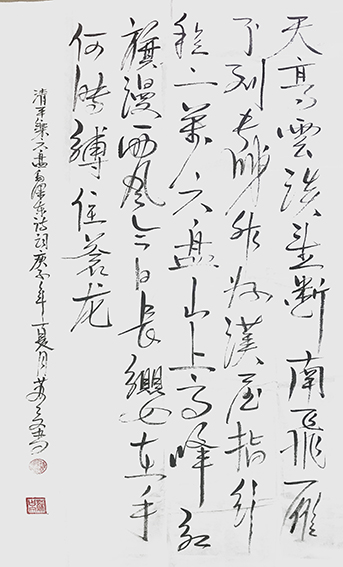 天高雲淡望断南飛雁
不到長城非好漢屈指行
程二萬六盘山上高峰红
旗漫西风今日長纓在手
何時縛住蒼龙
清平樂六盘毛澤東诗词庚子年夏月书